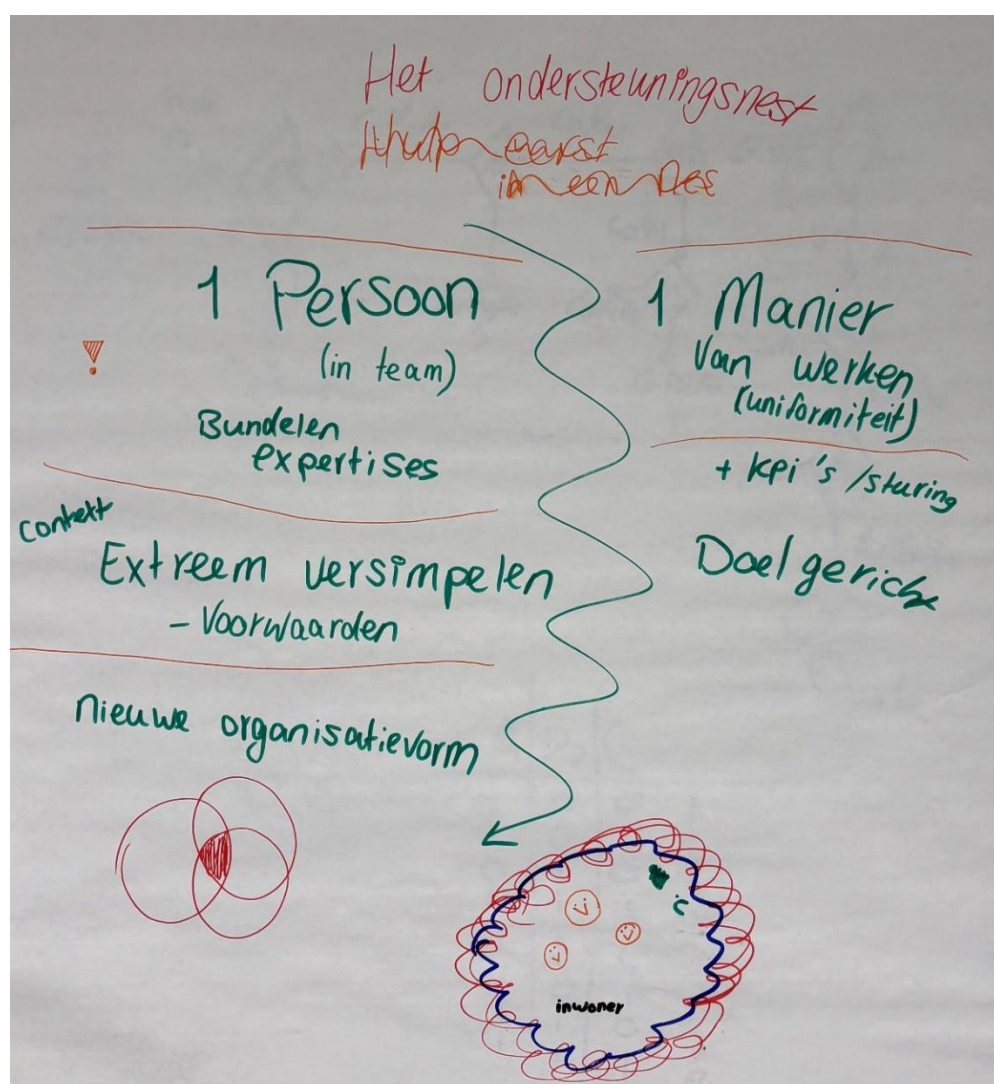 Het ondersteuningsnest
eerst
in een
1 Persoon
(in team)
Bundelen
expertises
Context
Extreem versimpelen
- Voorwaarden
nieuwe organisatievorm
1 Manier
Van werken
(uniformiteit)
+ KPI's / sturing
Doelgericht
inwoner